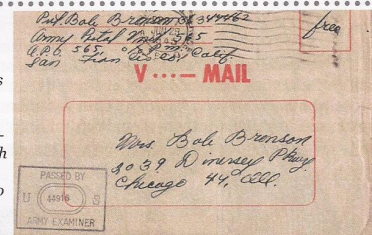 Pvt. Bob Brenson 36344462
Army Postal Unit 565
A.P.O. 565, c/o P.M.
San Francisco, Calif.
free
V ···— MAIL
Mrs. Bob Brenson
2039 Diversey Pkwy.
Chicago 44, Ill.
PASSED BY
U 44916 S
ARMY EXAMINER